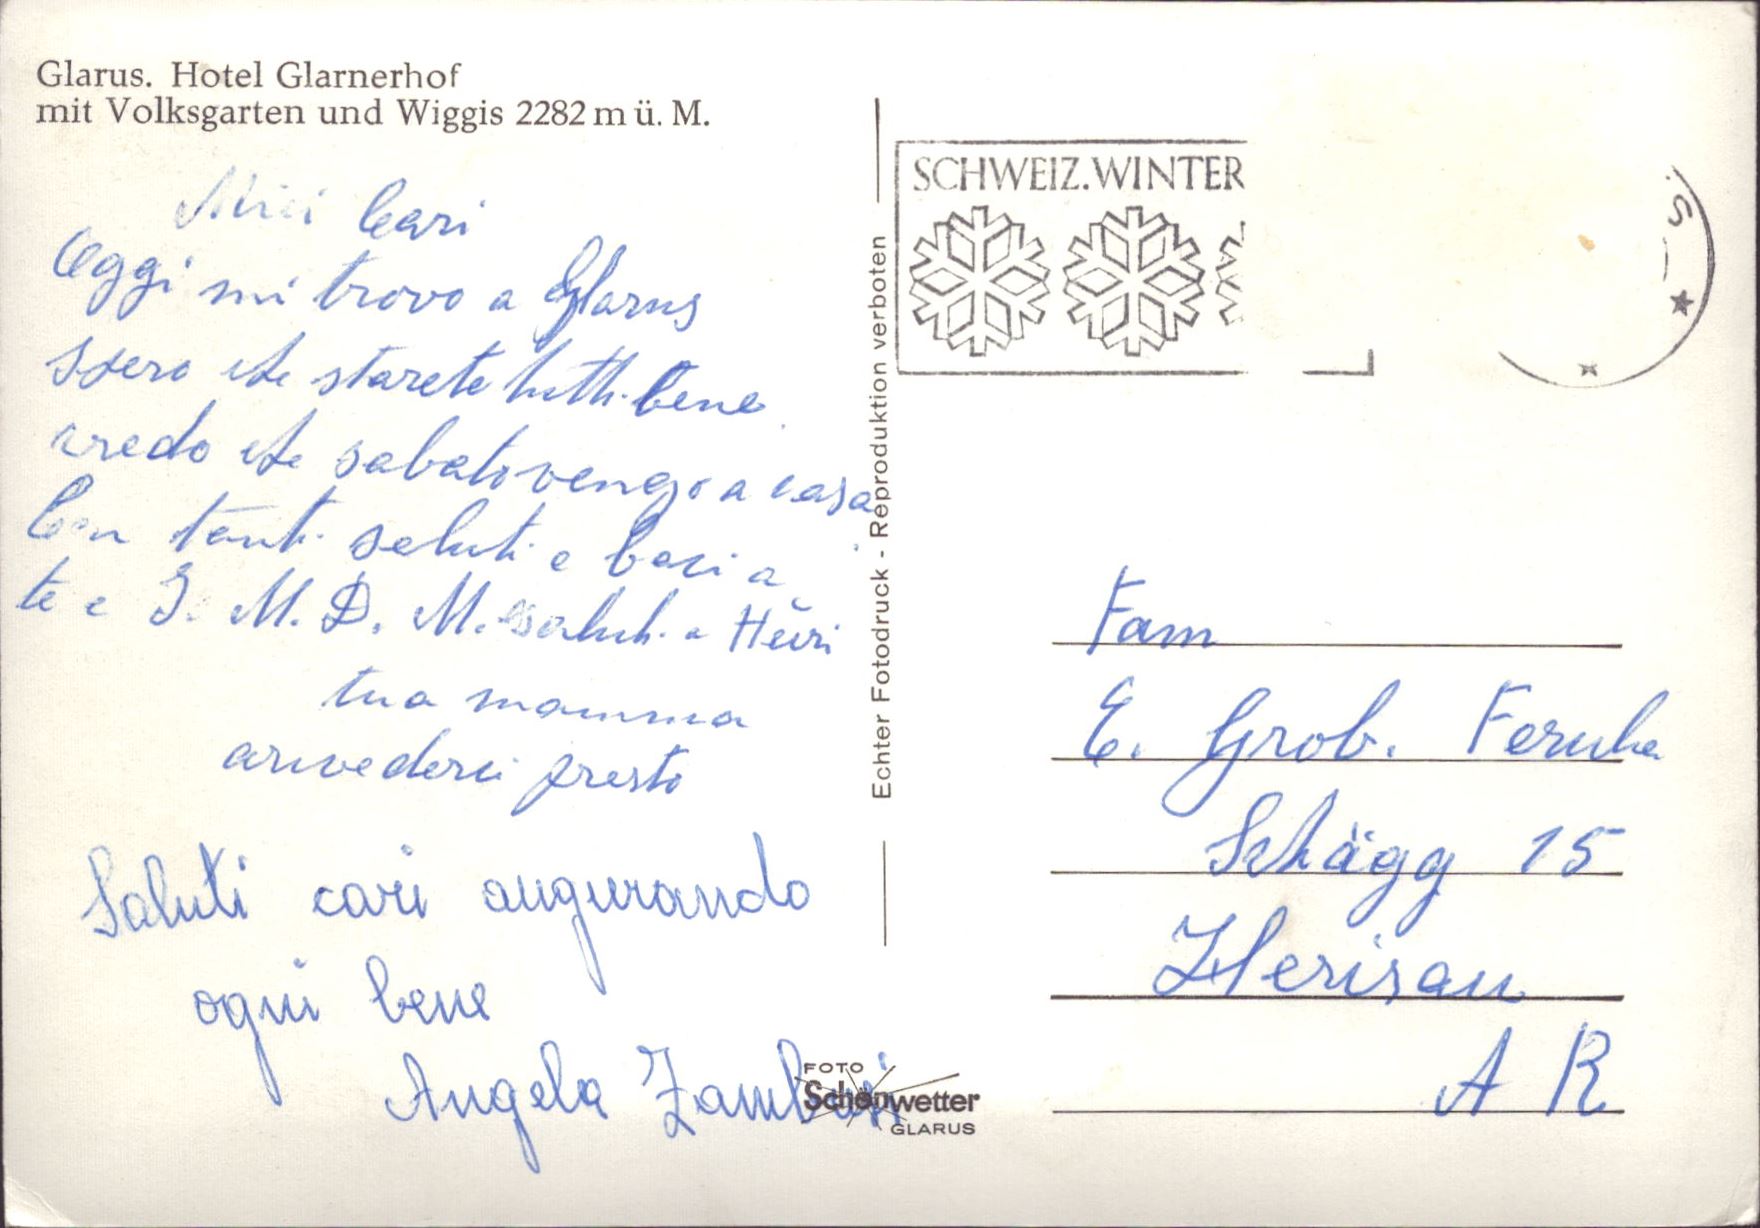 Glarus. Hotel Glarnerhof
mit Volksgarten und Wiggis 2282 m ü. M.
Miei Cari
Oggi mi trovo a Glarus
spero che starete tutti bene
credo che sabato vengo a casa
Con tanti saluti e baci a
te e G. M. D. M. saluti a Heiri
tua mamma
arivederci presto
Saluti cari augurando
ogni bene
Angela
SCHWEIZ. WINTER
Echter Fotodruck - Reproduktion verboten
Fam
E. Grob.
Schägg 15
Herisau
A R
FOTO
Schönwetter
GLARUS